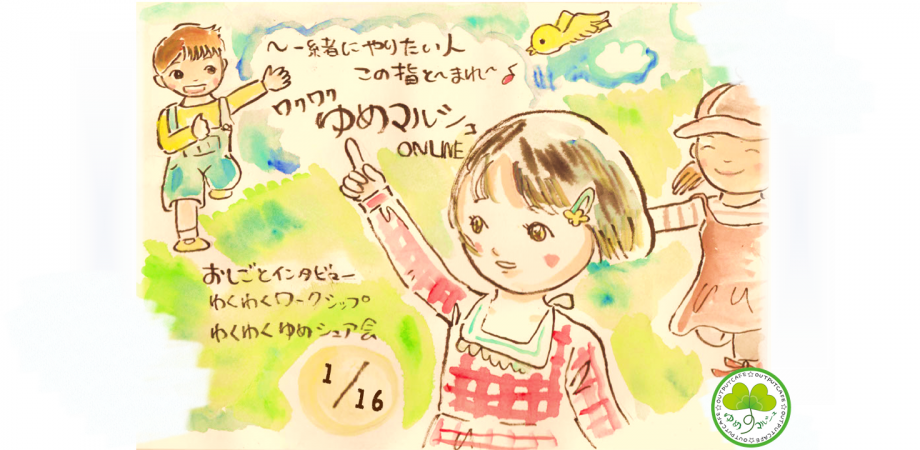 〜一緒にやりたい人
この指と〜まれ〜♪
ワクワク
ゆめマルシェ
ONLINE
おしごとインタビュー
わくわくワークショップ
わくわくゆめシェア会
1/16
OUTPUTCAFE☆OUTPUTCAFE☆OUTPUTCAFE☆OUTPUTCAFE☆
ゆめのマルシェ